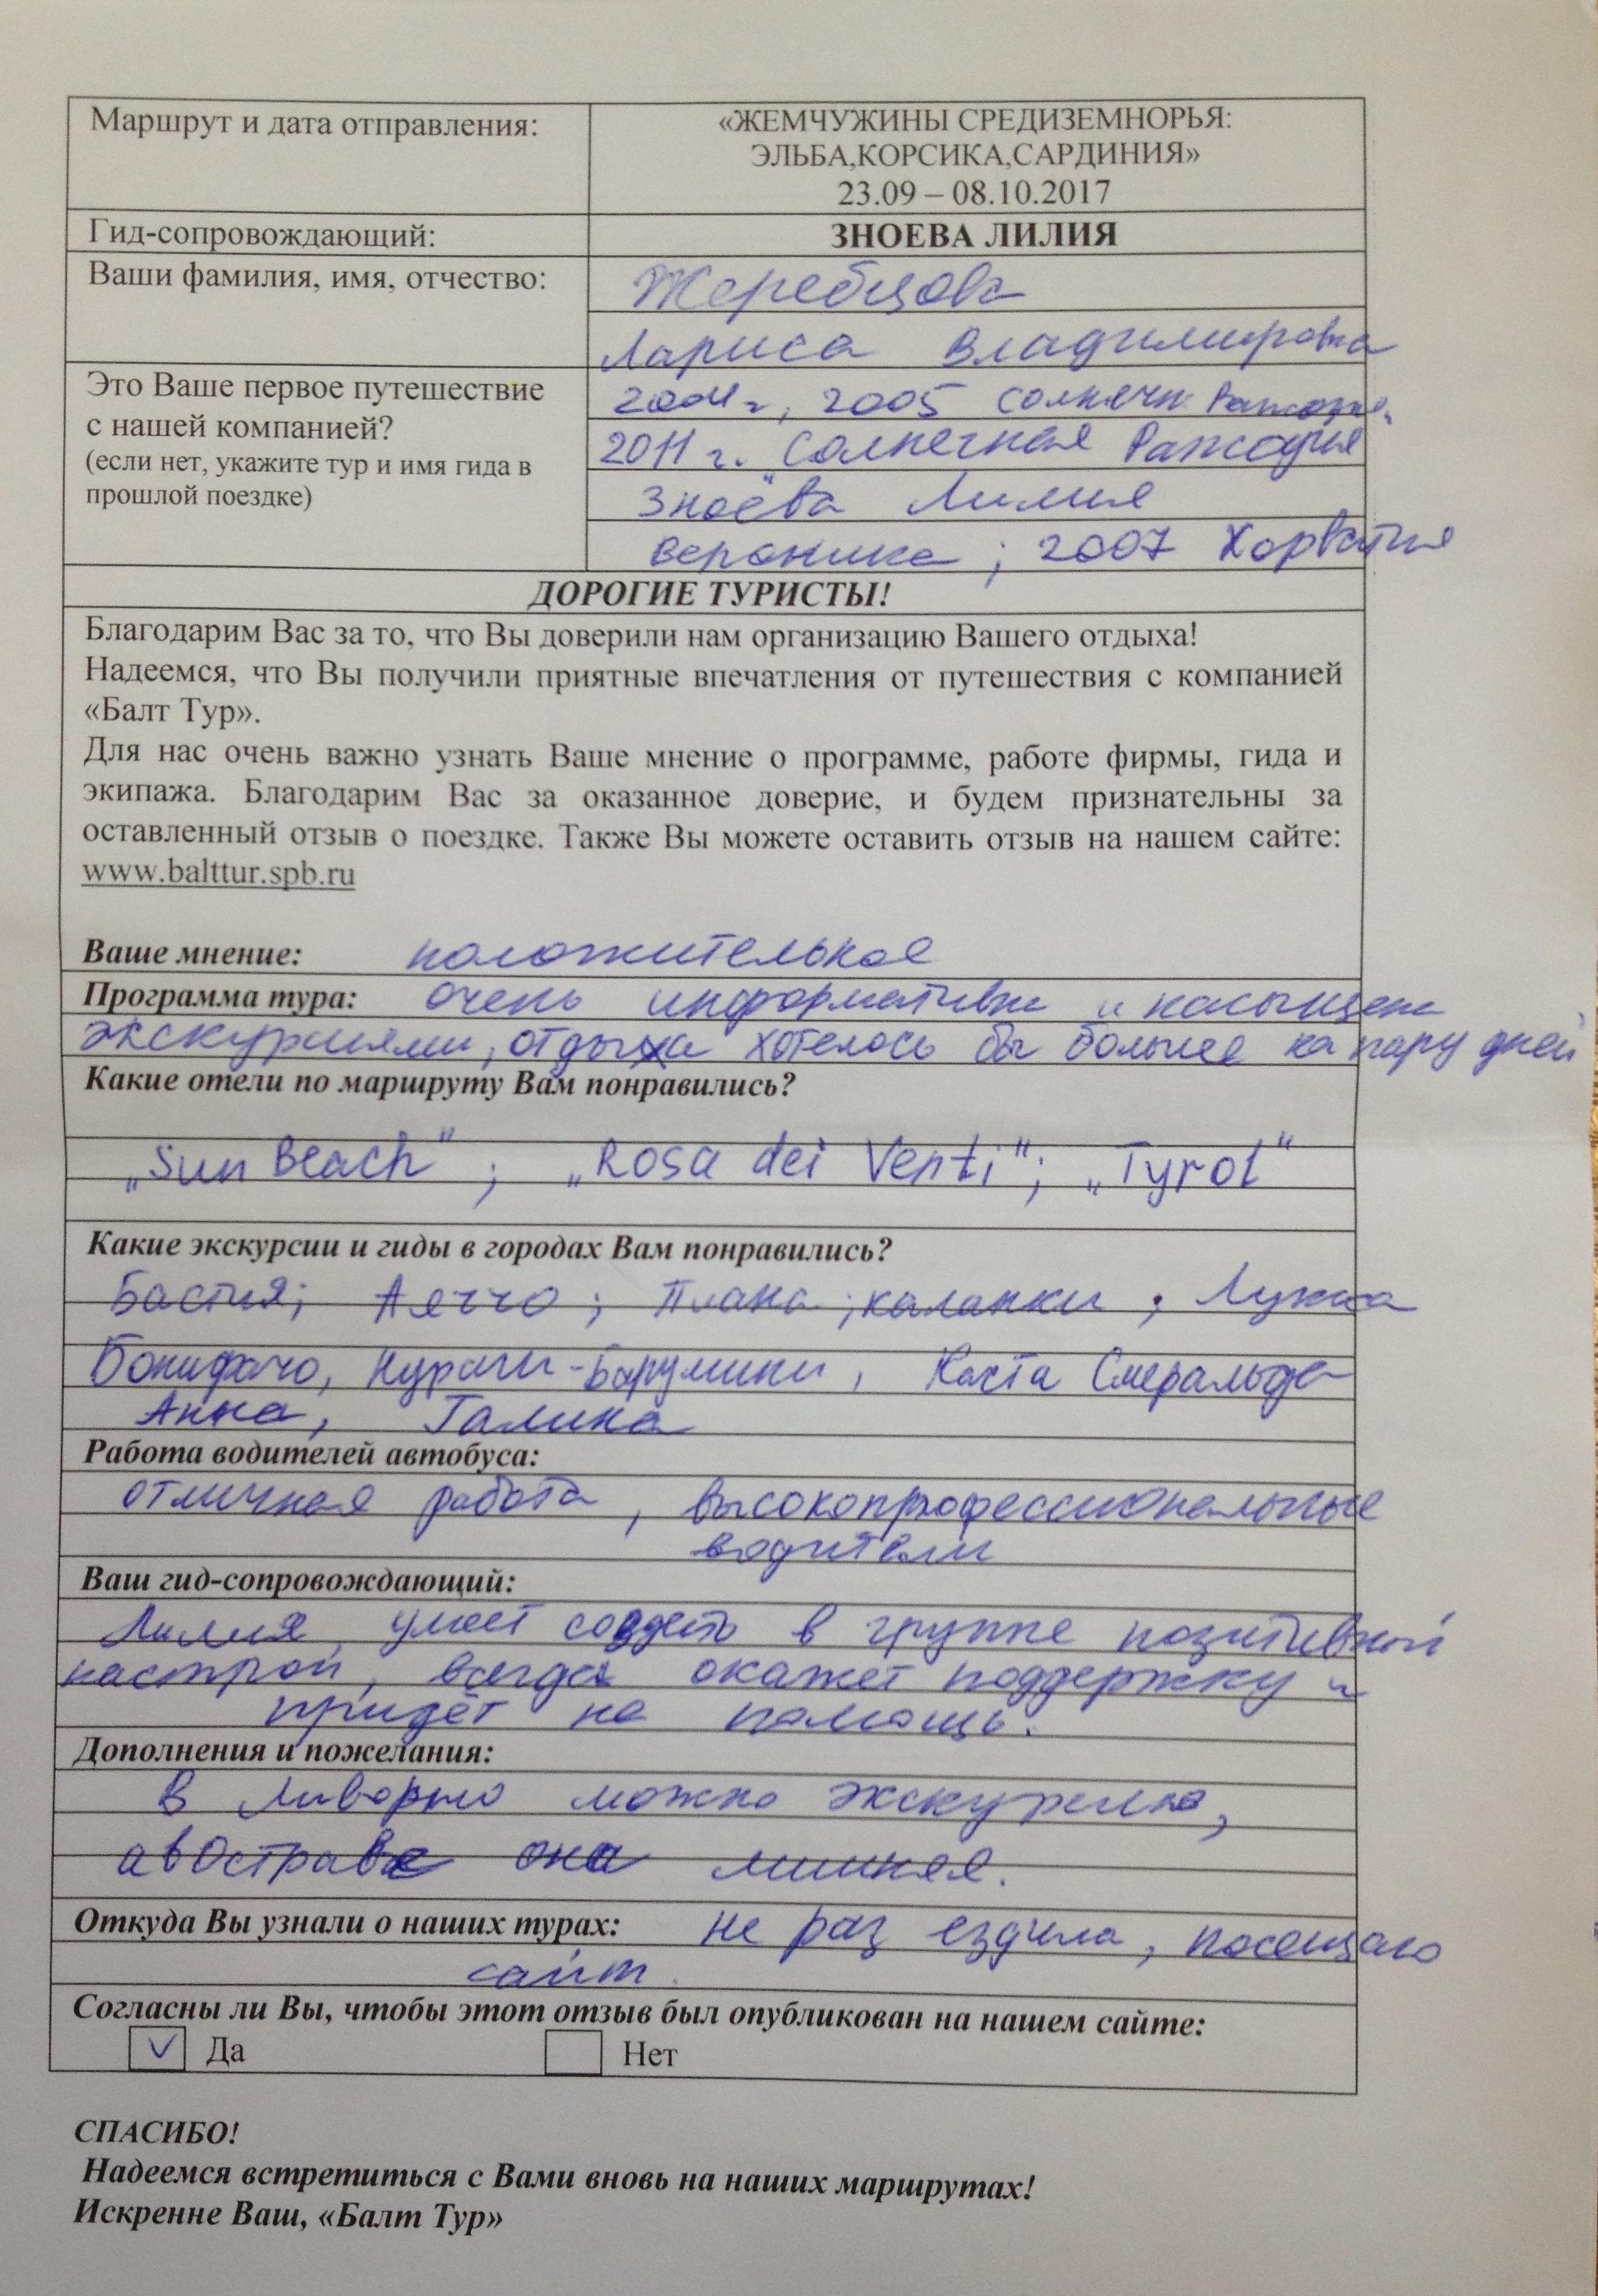 Маршрут и дата отправления:
«ЖЕМЧУЖИНЫ СРЕДИЗЕМНОРЬЯ:
ЭЛЬБА,КОРСИКА,САРДИНИЯ»
23.09 – 08.10.2017
Гид-сопровождающий:
ЗНОЕВА ЛИЛИЯ
Ваши фамилия, имя, отчество:
Жеребцова
Лариса Владимировна
Это Ваше первое путешествие
с нашей компанией?
(если нет, укажите тур и имя гида в
прошлой поездке)
2004г, 2005 солнечн.
2011 г. Солнечная Рапсодия
Зноёва Лилия
Вероника ; 2007 Хорватия
ДОРОГИЕ ТУРИСТЫ!
Благодарим Вас за то, что Вы доверили нам организацию Вашего отдыха!
Надеемся, что Вы получили приятные впечатления от путешествия с компанией
«Балт Тур».
Для нас очень важно узнать Ваше мнение о программе, работе фирмы, гида и
экипажа. Благодарим Вас за оказанное доверие, и будем признательны за
оставленный отзыв о поездке. Также Вы можете оставить отзыв на нашем сайте:
www.balttur.spb.ru
Ваше мнение: положительное
Программа тура: очень информативн и насыщена
экскурсиями, отдыха хотелось бы больше на пару дней
Какие отели по маршруту Вам понравились?
„Sun Beach" ; „Rosa dei Venti"; „Tyrol"
Какие экскурсии и гиды в городах Вам понравились?
Бастия; Аяччо ; Пиана ; каланки ,
Бонифачо, Нураги-Барумини, Коста Смеральда
Анна, Галина
Работа водителей автобуса:
отличная работа, высокопрофессиональные
водители
Ваш гид-сопровождающий:
Лилия умеет создать в группе позитивный
настрой, всегда окажет поддержку и
придёт на помощь.
Дополнения и пожелания:
В Ливорно можно экскурсию,
а в Остраве она лишняя.
Откуда Вы узнали о наших турах: не раз ездила, посещаю
сайт.
Согласны ли Вы, чтобы этот отзыв был опубликован на нашем сайте:
✓ Да Нет
СПАСИБО!
Надеемся встретиться с Вами вновь на наших маршрутах!
Искренне Ваш, «Балт Тур»